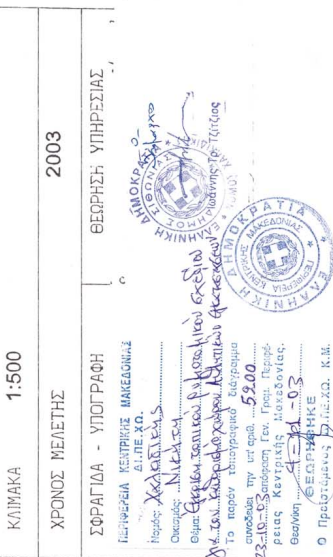 ΚΛΙΜΑΚΑ 1:500
ΧΡΟΝΟΣ ΜΕΛΕΤΗΣ 2003
ΣΦΡΑΓΙΔΑ - ΥΠΟΓΡΑΦΗ ΘΕΩΡΗΣΗ ΥΠΗΡΕΣΙΑΣ
ΠΕΡΙΦΕΡΕΙΑ ΚΕΝΤΡΙΚΗΣ ΜΑΚΕΔΟΝΙΑΣ
ΔΙ.ΠΕ.ΧΩ.
Νομός: Χαλκιδικής
Οικισμός: Νικήτη
Θέμα: τοπικού ρυμοτομικού σχεδίου
για τον καθορισμό χώρου Αθλητικών
Το παρόν τοπογραφικό διάγραμμα
συνοδεύει την υπ' αριθ. 5900
22-10-03 απόφαση Γεν. Γραμ. Περιφέ-
ρειας Κεντρικής Μακεδονίας.
Θεσ/νίκη -03
ΘΕΩΡΗΘΗΚΕ
Ο Προϊστάμενος ΔΙ.ΠΕ.ΧΩ. Κ.Μ.
ΕΛΛΗΝΙΚΗ ΔΗΜΟΚΡΑΤΙΑ
Ιωάννης Τζίτζιος
ΕΛΛΗΝΙΚΗ ΔΗΜΟΚΡΑΤΙΑ
ΠΕΡΙΦΕΡΕΙΑ ΚΕΝΤΡΙΚΗΣ ΜΑΚΕΔΟΝΙΑΣ